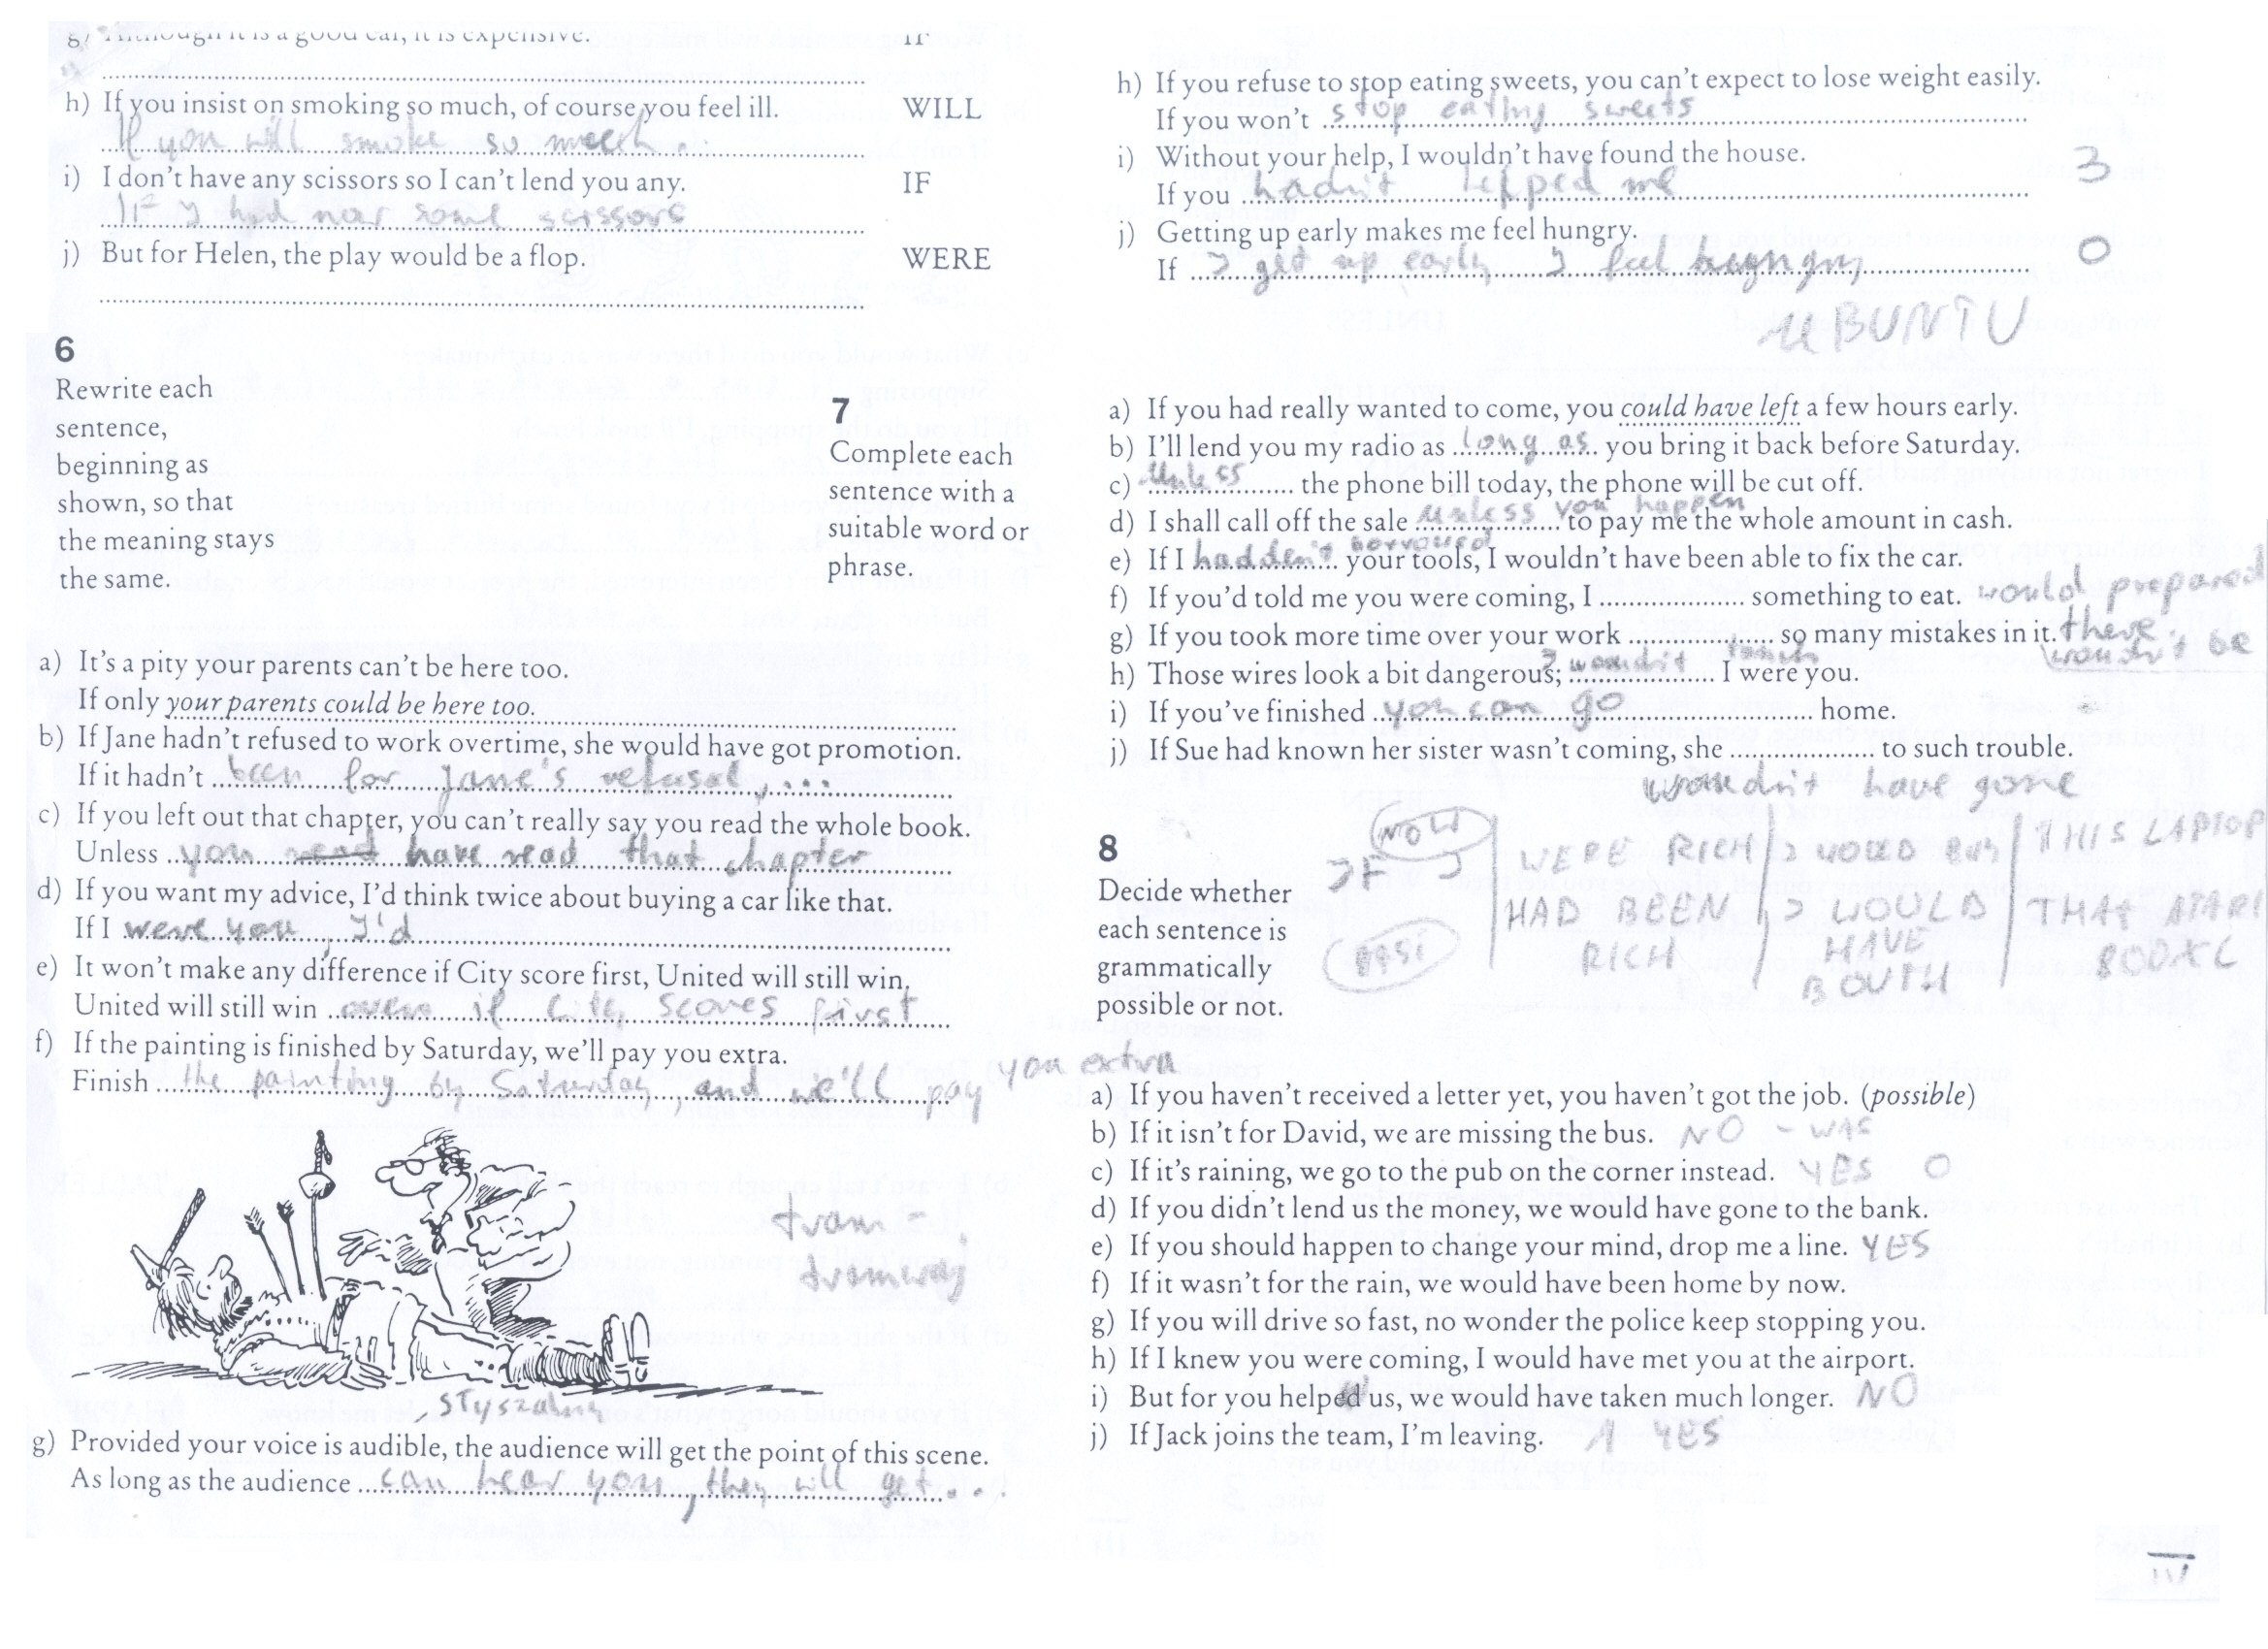 g) Although it is a good car, it is expensive. IF
h) If you insist on smoking so much, of course you feel ill. WILL
If you will smoke so much.
i) I don't have any scissors so I can't lend you any. IF
If I had some scissors
j) But for Helen, the play would be a flop. WERE
6
Rewrite each
sentence,
beginning as
shown, so that
the meaning stays
the same.
a) It's a pity your parents can't be here too.
If only your parents could be here too.
b) If Jane hadn't refused to work overtime, she would have got promotion.
If it hadn't been for Jane's refusal, ...
c) If you left out that chapter, you can't really say you read the whole book.
Unless you read have read that chapter
d) If you want my advice, I'd think twice about buying a car like that.
If I were you, I'd
e) It won't make any difference if City score first, United will still win.
United will still win even if City scores first
f) If the painting is finished by Saturday, we'll pay you extra.
Finish the painting by Saturday, and we'll pay you extra
tram =
tramwaj
słyszalny
g) Provided your voice is audible, the audience will get the point of this scene.
As long as the audience can hear you, they will get...
h) If you refuse to stop eating sweets, you can't expect to lose weight easily.
If you won't stop eating sweets
i) Without your help, I wouldn't have found the house. 3
If you hadn't helpped me
j) Getting up early makes me feel hungry. 0
If I get up early I feel
UBUNTU
7
Complete each
sentence with a
suitable word or
phrase.
a) If you had really wanted to come, you could have left a few hours early.
b) I'll lend you my radio as long as you bring it back before Saturday.
c) Unless the phone bill today, the phone will be cut off.
d) I shall call off the sale unless you happen to pay me the whole amount in cash.
e) If I hadden't borrowed your tools, I wouldn't have been able to fix the car.
f) If you'd told me you were coming, I .......... something to eat. would prepared
g) If you took more time over your work .......... so many mistakes in it. there wouldn't be
h) Those wires look a bit dangerous; I wouldn't touch I were you.
i) If you've finished you can go home.
j) If Sue had known her sister wasn't coming, she .......... to such trouble.
wouldn't have gone
8
Decide whether
each sentence is
grammatically
possible or not.
NOW
IF I WERE RICH I WOULD BUY THIS LAPTOP
HAD BEEN RICH I WOULD HAVE THAT ATARI 800XL
a) If you haven't received a letter yet, you haven't got the job. (possible)
b) If it isn't for David, we are missing the bus. NO - WAS
c) If it's raining, we go to the pub on the corner instead. YES 0
d) If you didn't lend us the money, we would have gone to the bank.
e) If you should happen to change your mind, drop me a line. YES
f) If it wasn't for the rain, we would have been home by now.
g) If you will drive so fast, no wonder the police keep stopping you.
h) If I knew you were coming, I would have met you at the airport.
i) But for you helped us, we would have taken much longer. NO
j) If Jack joins the team, I'm leaving. 1 YES
IV